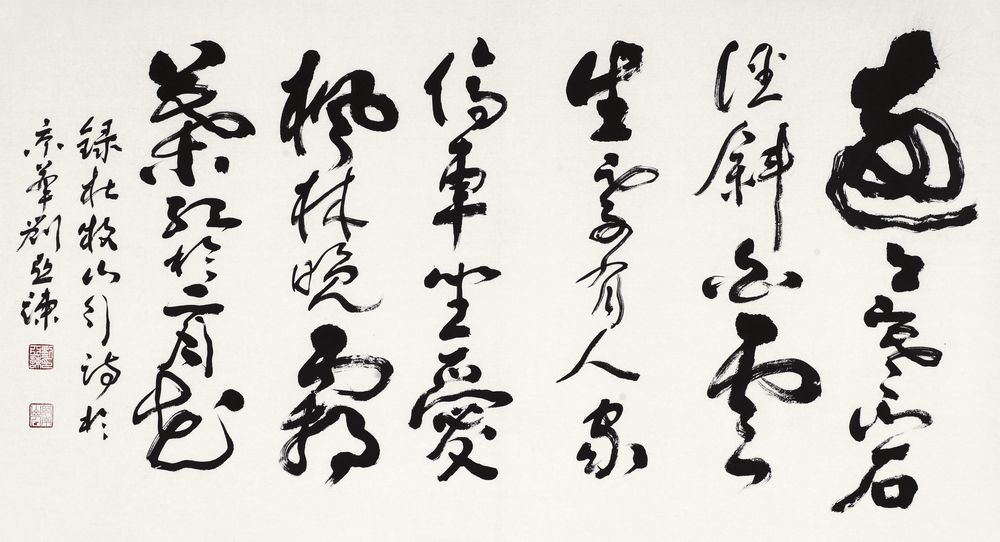 遠上寒山石
徑斜白雲
生處有人家
停車坐愛
楓林晚霜
葉紅於二月花
録杜牧山行詩於
京華劉亞諫